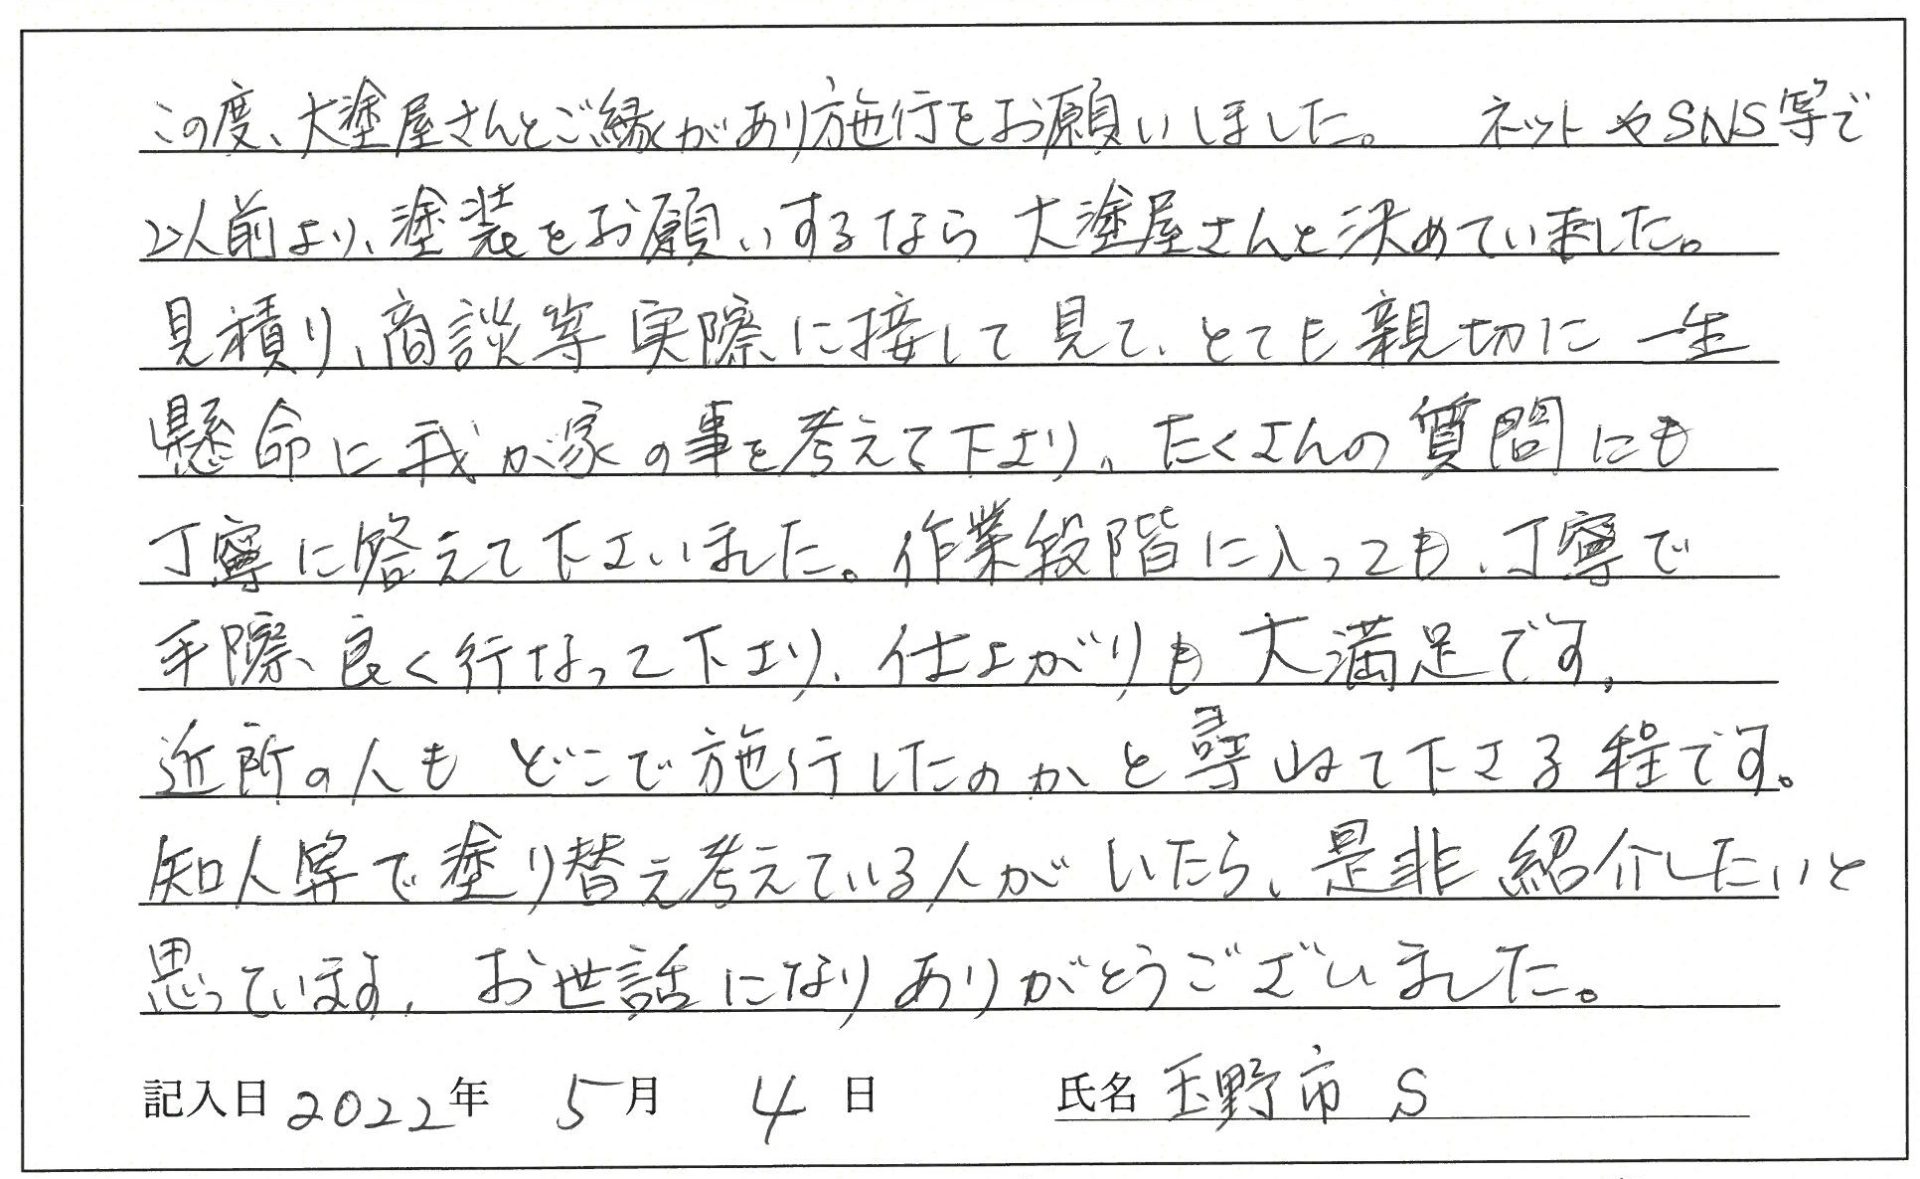 この度、大塗屋さんとご縁があり施行をお願いしました。 ネットやSNS等で
以前より、塗装をお願いするなら大塗屋さんと決めていました。
見積り、商談等実際に接して見て、とても親切に一生
懸命に我が家の事を考えて下さり、たくさんの質問にも
丁寧に答えて下さいました。作業段階に入っても、丁寧で
手際良く行なって下さり、仕上がりも大満足です。
近所の人もどこで施行したのかと尋ねて下さる程です。
知人等で塗り替え考えている人がいたら、是非紹介したいと
思っています。お世話になりありがとうございました。
記入日 2022年 5月 4日 氏名 玉野市 S